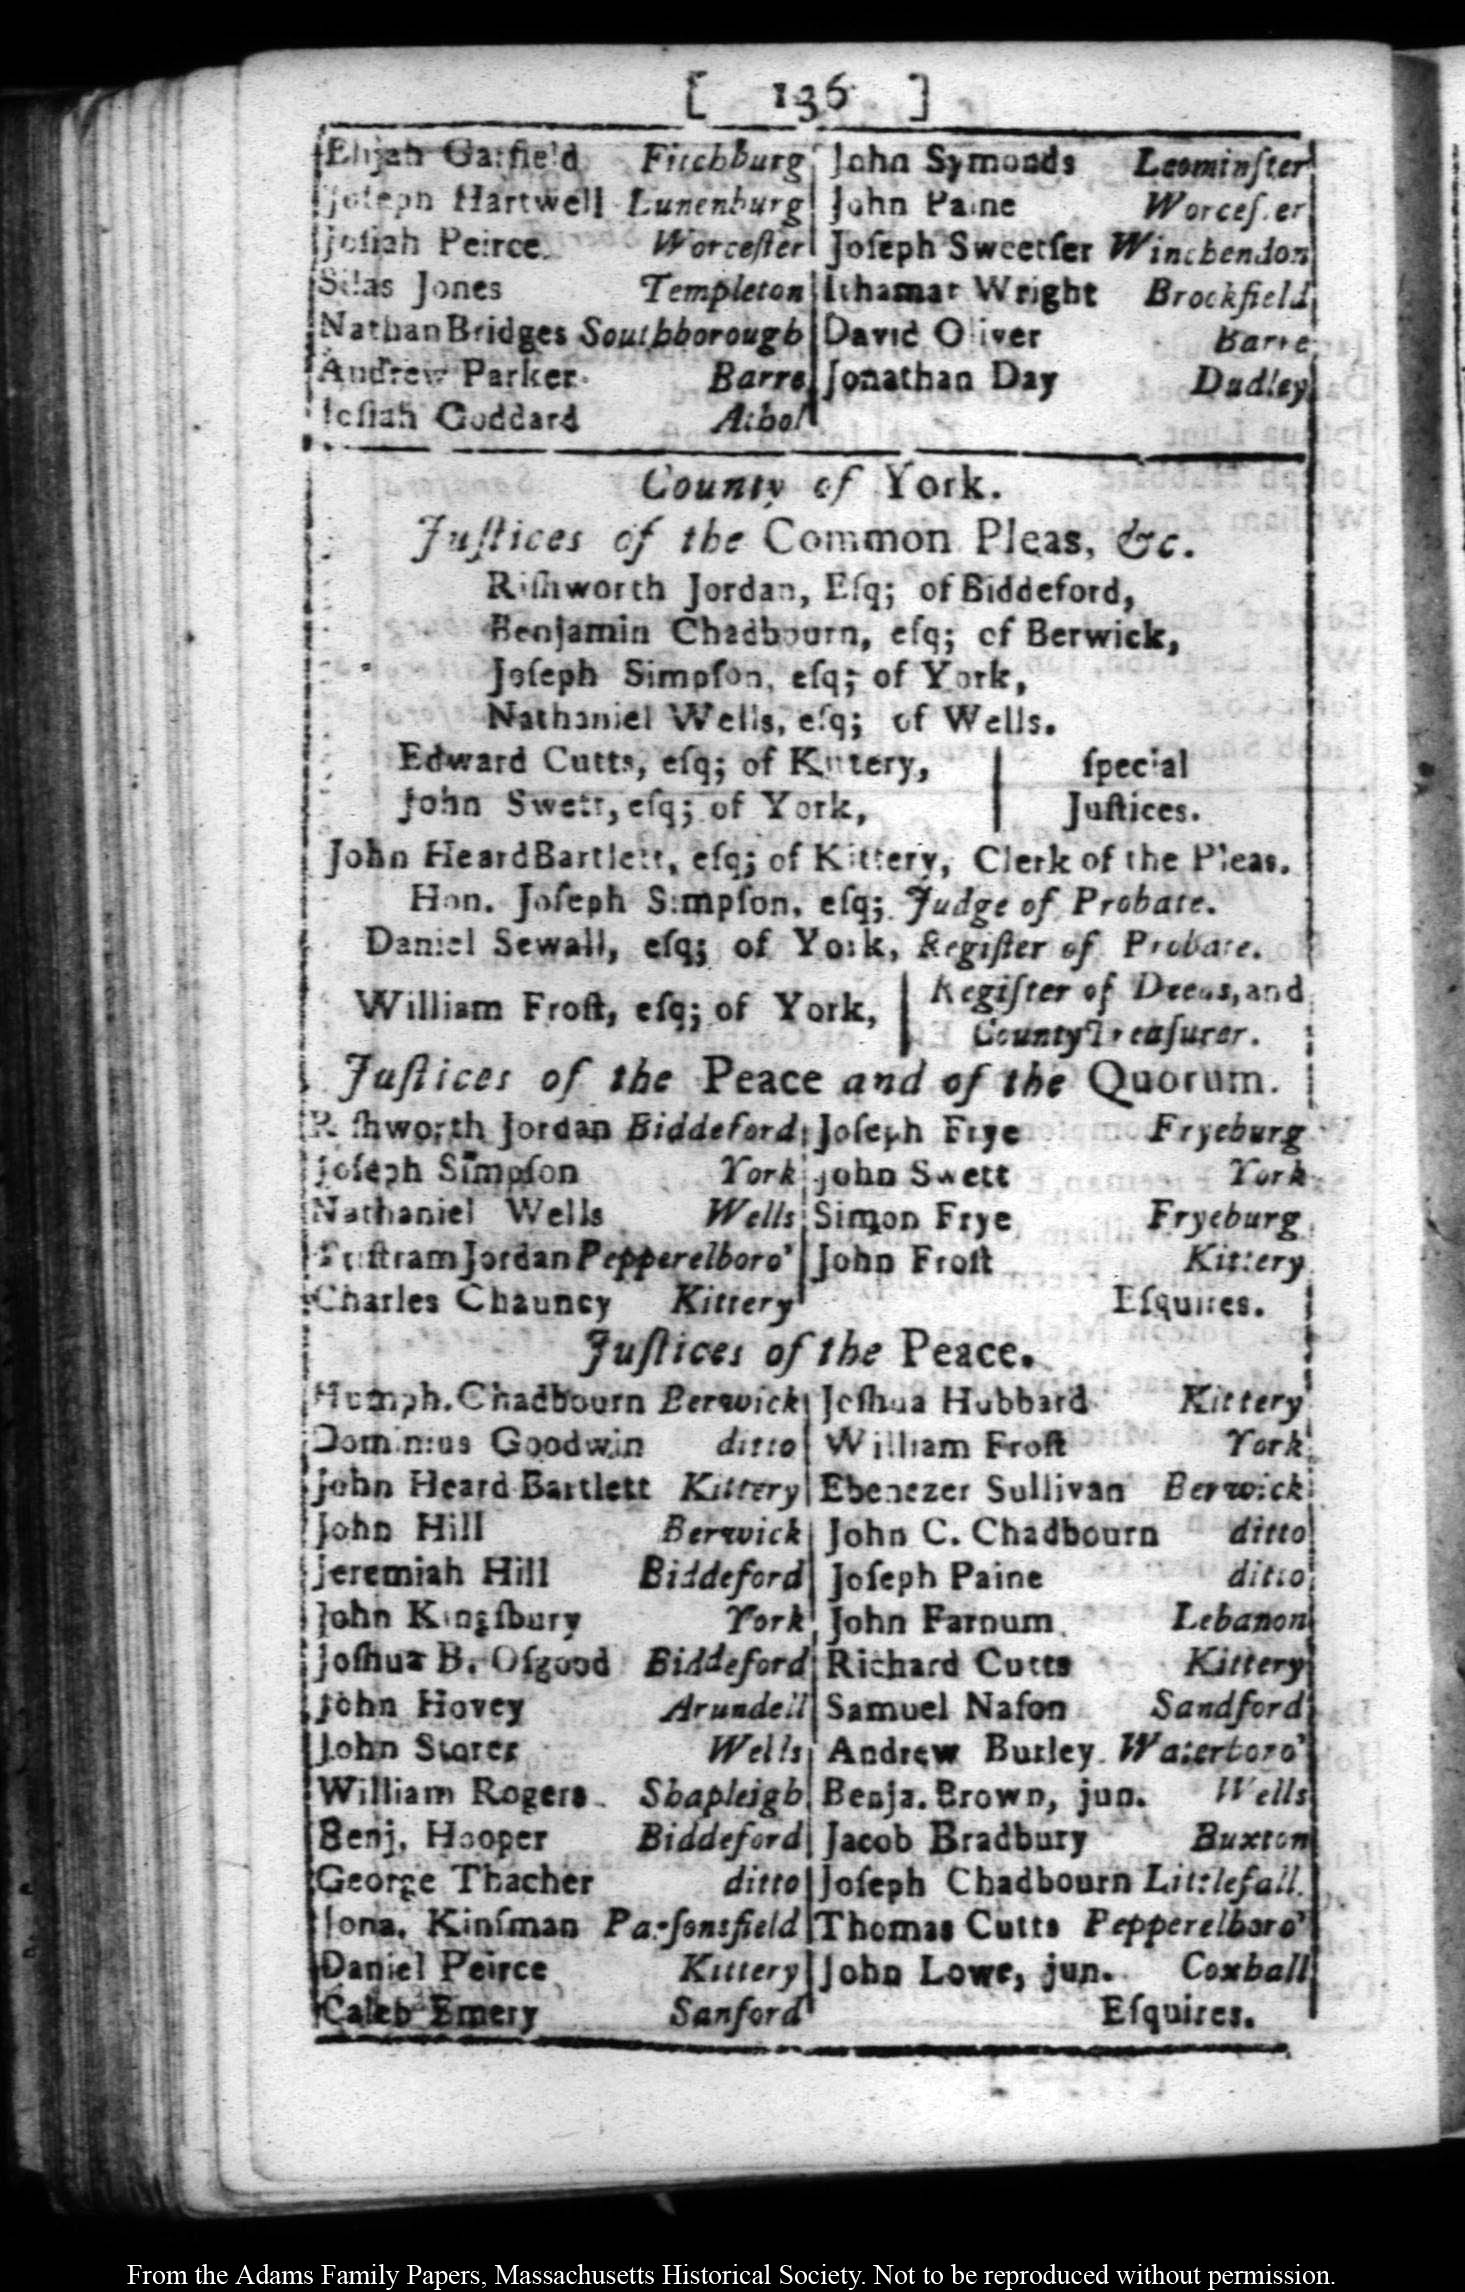 [ 136 ]
Elijah Garfield Fitchburg
Joseph Hartwell Lunenburg
Josiah Peirce Worceſter
Silas Jones Templeton
Nathan Bridges Southborough
Andrew Parker Barre
Joſiah Goddard Athol
John Symonds Leominſter
John Paine Worceſter
Joſeph Sweetſer Winchendon
Ithamar Wright Brockfield
David Oliver Barre
Jonathan Day Dudley
County of York.
Juſtices of the Common Pleas, &c.
Riſhworth Jordan, Eſq; of Biddeford,
Benjamin Chadbourn, eſq; of Berwick,
Joſeph Simpſon, eſq; of York,
Nathaniel Wells, eſq; of Wells.
Edward Cutts, eſq; of Kittery,
John Swett, eſq; of York,
ſpecial
Juſtices.
John Heard Bartlett, eſq; of Kittery, Clerk of the Pleas.
Hon. Joſeph Simpſon, eſq; Judge of Probate.
Daniel Sewall, eſq; of York, Regiſter of Probate.
William Froſt, eſq; of York,
Regiſter of Deeds, and
County Treaſurer.
Juſtices of the Peace and of the Quorum.
Riſhworth Jordan Biddeford
Joſeph Simpſon York
Nathaniel Wells Wells
Triſtram Jordan Pepperelboro'
Charles Chauncy Kittery
Joſeph Frye Fryeburg
John Swett York
Simon Frye Fryeburg
John Froſt Kittery
Eſquires.
Juſtices of the Peace.
Humph. Chadbourn Berwick
Dominicus Goodwin ditto
John Heard Bartlett Kittery
John Hill Berwick
Jeremiah Hill Biddeford
John Kingſbury York
Joſhua B. Oſgood Biddeford
John Hovey Arundell
John Storer Wells
William Rogers Shapleigh
Benj. Hooper Biddeford
George Thacher ditto
Jona. Kinſman Parſonsfield
Daniel Peirce Kittery
Caleb Emery Sanford
Joſhua Hubbard Kittery
William Froſt York
Ebenezer Sullivan Berwick
John C. Chadbourn ditto
Joſeph Paine ditto
John Farnum Lebanon
Richard Cutts Kittery
Samuel Naſon Sandford
Andrew Burley Waterboro'
Benja. Brown, jun. Wells
Jacob Bradbury Buxton
Joſeph Chadbourn Littlefall.
Thomas Cutts Pepperelboro'
John Lowe, jun. Coxhall
Eſquires.
From the Adams Family Papers, Massachusetts Historical Society. Not to be reproduced without permission.